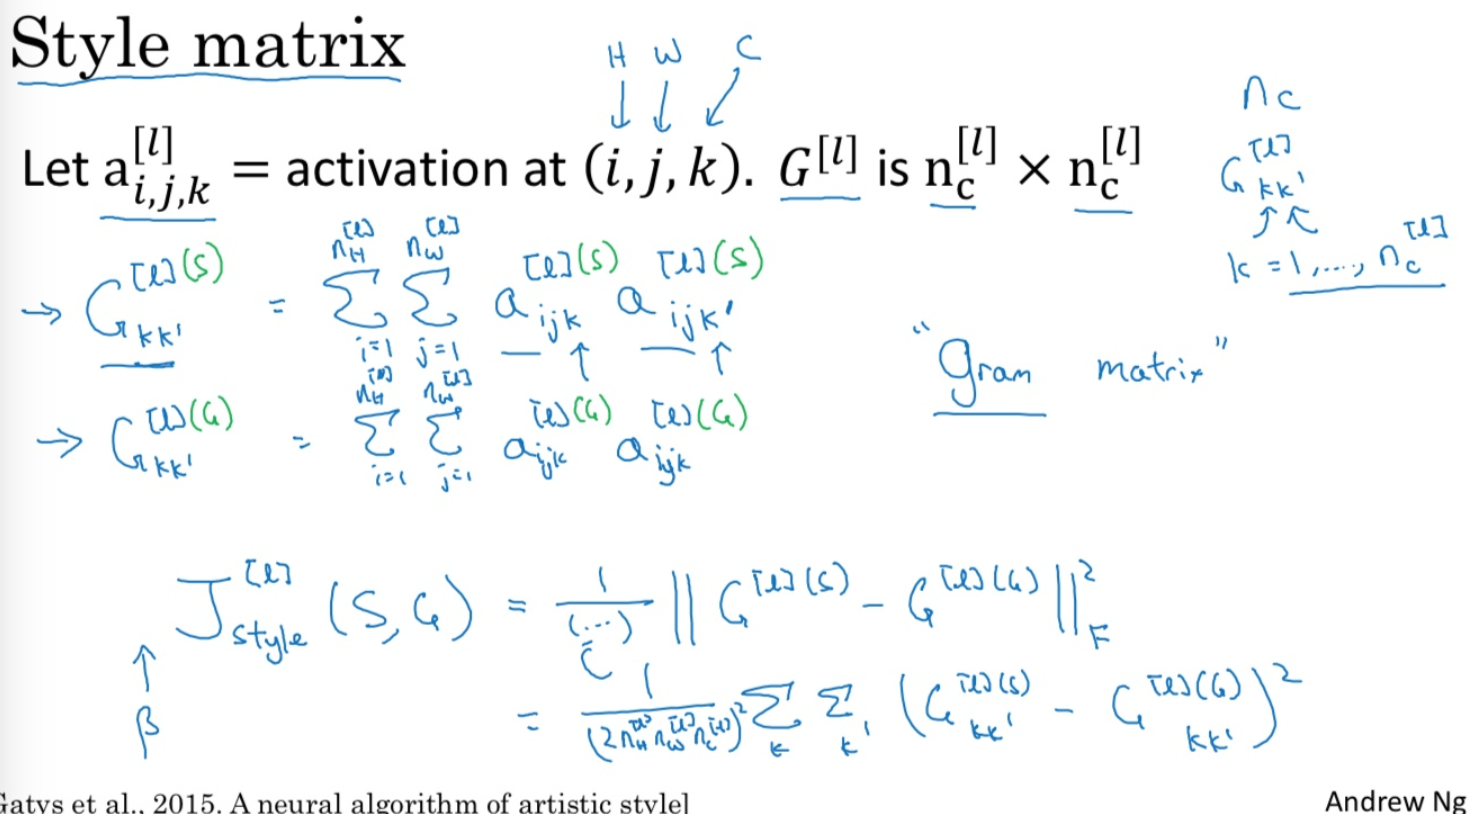 Style matrix
H W C
n_c
Let a_{i,j,k}^{[l]} = activation at (i, j, k). G^{[l]} is n_c^{[l]} × n_c^{[l]}
G_{kk'}^{[l]}
k = 1, ..., n_c^{[l]}
→ G_{kk'}^{[l](S)} = ∑_{i=1}^{n_H^{[l]}} ∑_{j=1}^{n_W^{[l]}} a_{ijk}^{[l](S)} a_{ijk'}^{[l](S)}
"Gram matrix"
→ G_{kk'}^{[l](G)} = ∑_{i=1}^{n_H^{[l]}} ∑_{j=1}^{n_W^{[l]}} a_{ijk}^{[l](G)} a_{ijk}^{[l](G)}
J_{style}^{[l]} (S, G) = 1/(...) || G^{[l](S)} - G^{[l](G)} ||_F^2
β
= 1/(2 n_H^{[l]} n_W^{[l]} n_c^{[l]})^2 ∑_k ∑_{k'} (G_{kk'}^{[l](S)} - G_{kk'}^{[l](G)})^2
Gatys et al., 2015. A neural algorithm of artistic style]
Andrew Ng